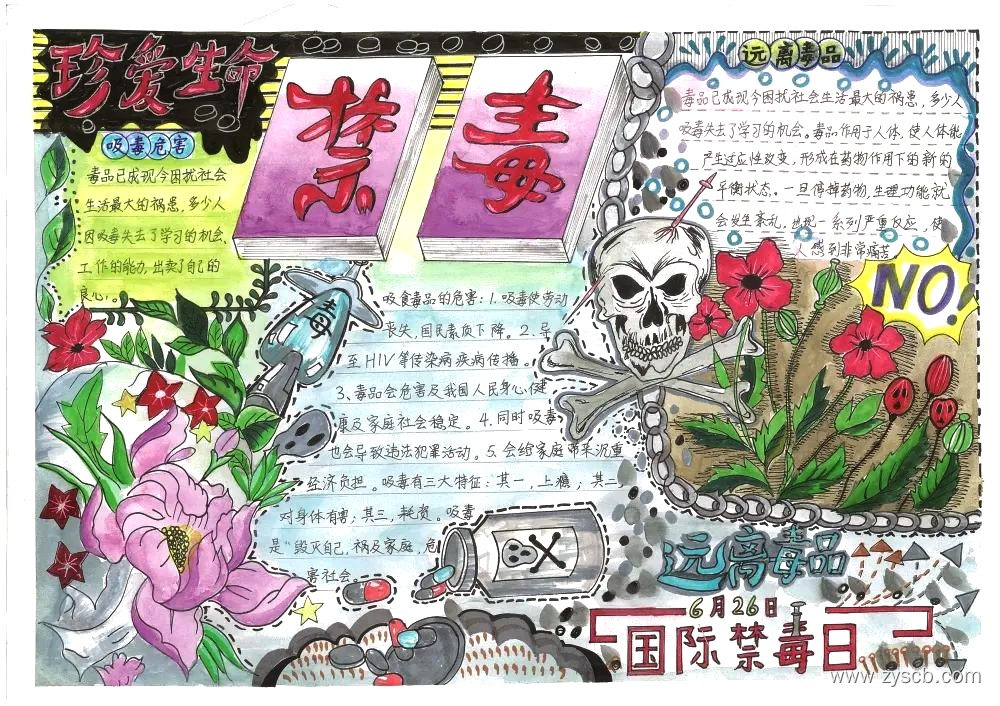 珍爱生命
禁毒
吸毒危害
毒品已成现今困扰社会
生活最大的祸患,多少人
因吸毒失去了学习的机会、
工作的能力,出卖了自己的
良心。
毒
吸食毒品的危害:1.吸毒使劳动
丧失,国民素质下降。2.导
至HIV等传染病疾病传播。
3、毒品会危害及我国人民身心健
康及家庭社会稳定。4.同时吸毒
也会导致违法犯罪活动。5.会给家庭带来沉重
经济负担。吸毒有三大特征:其一,上瘾;其二,
对身体有害;其三,耗资。吸毒
是“毁灭自己,祸及家庭,危
害社会。
远离毒品
毒品已成现今困扰社会生活最大的祸患,多少人
吸毒失去了学习的机会。毒品作用于人体,使人体能
产生适应性改变,形成在药物作用下的新的
平衡状态。一旦停掉药物,生理功能就
会发生紊乱,出现一系列严重反应,使
人感到非常痛苦
NO!
远离毒品
6月26日
国际禁毒日
www.zyscb.com